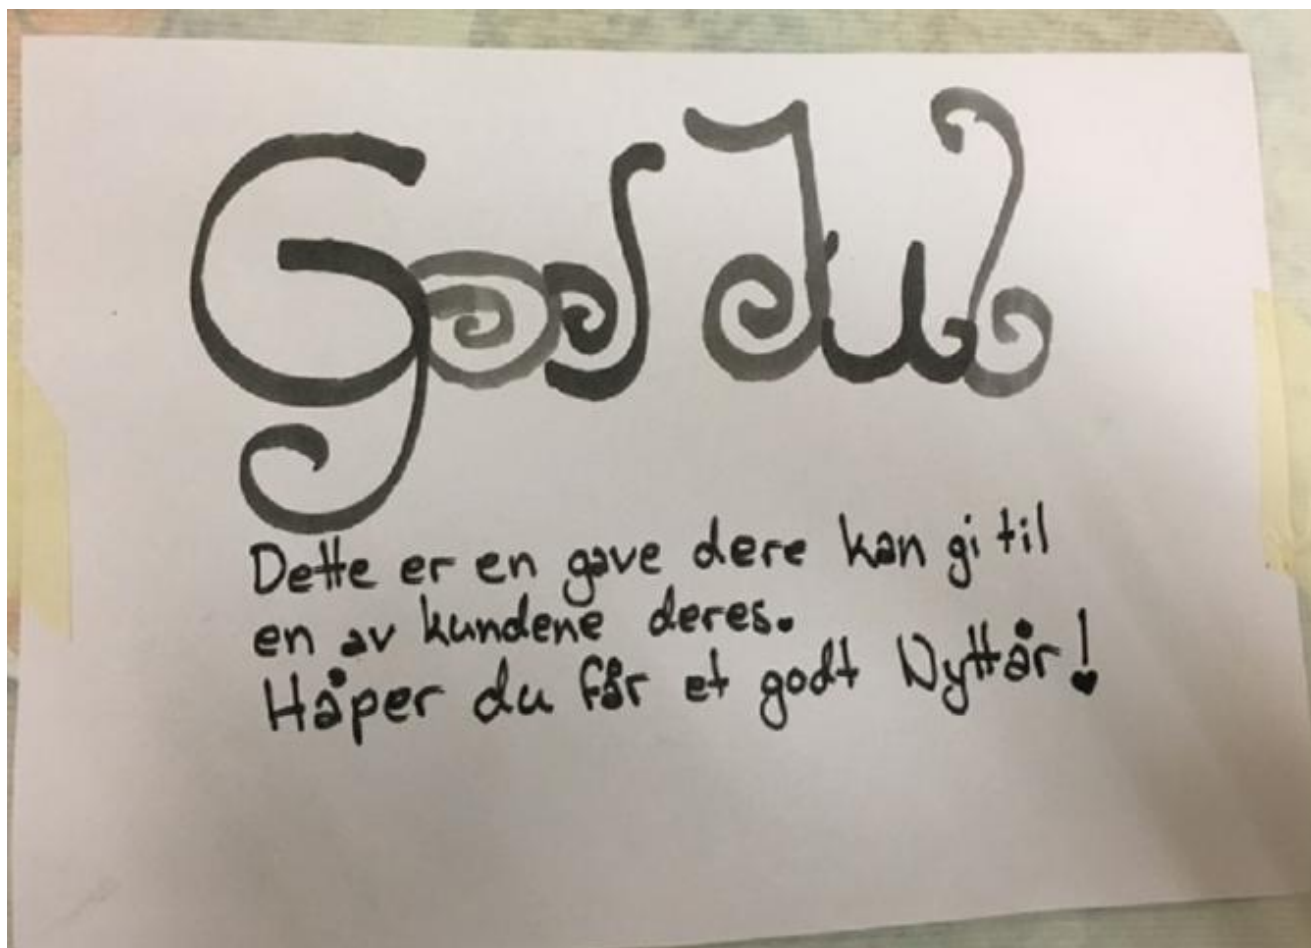 God Jul
Dette er en gave dere kan gi til
en av kundene deres.
Håper du får et godt Nyttår!